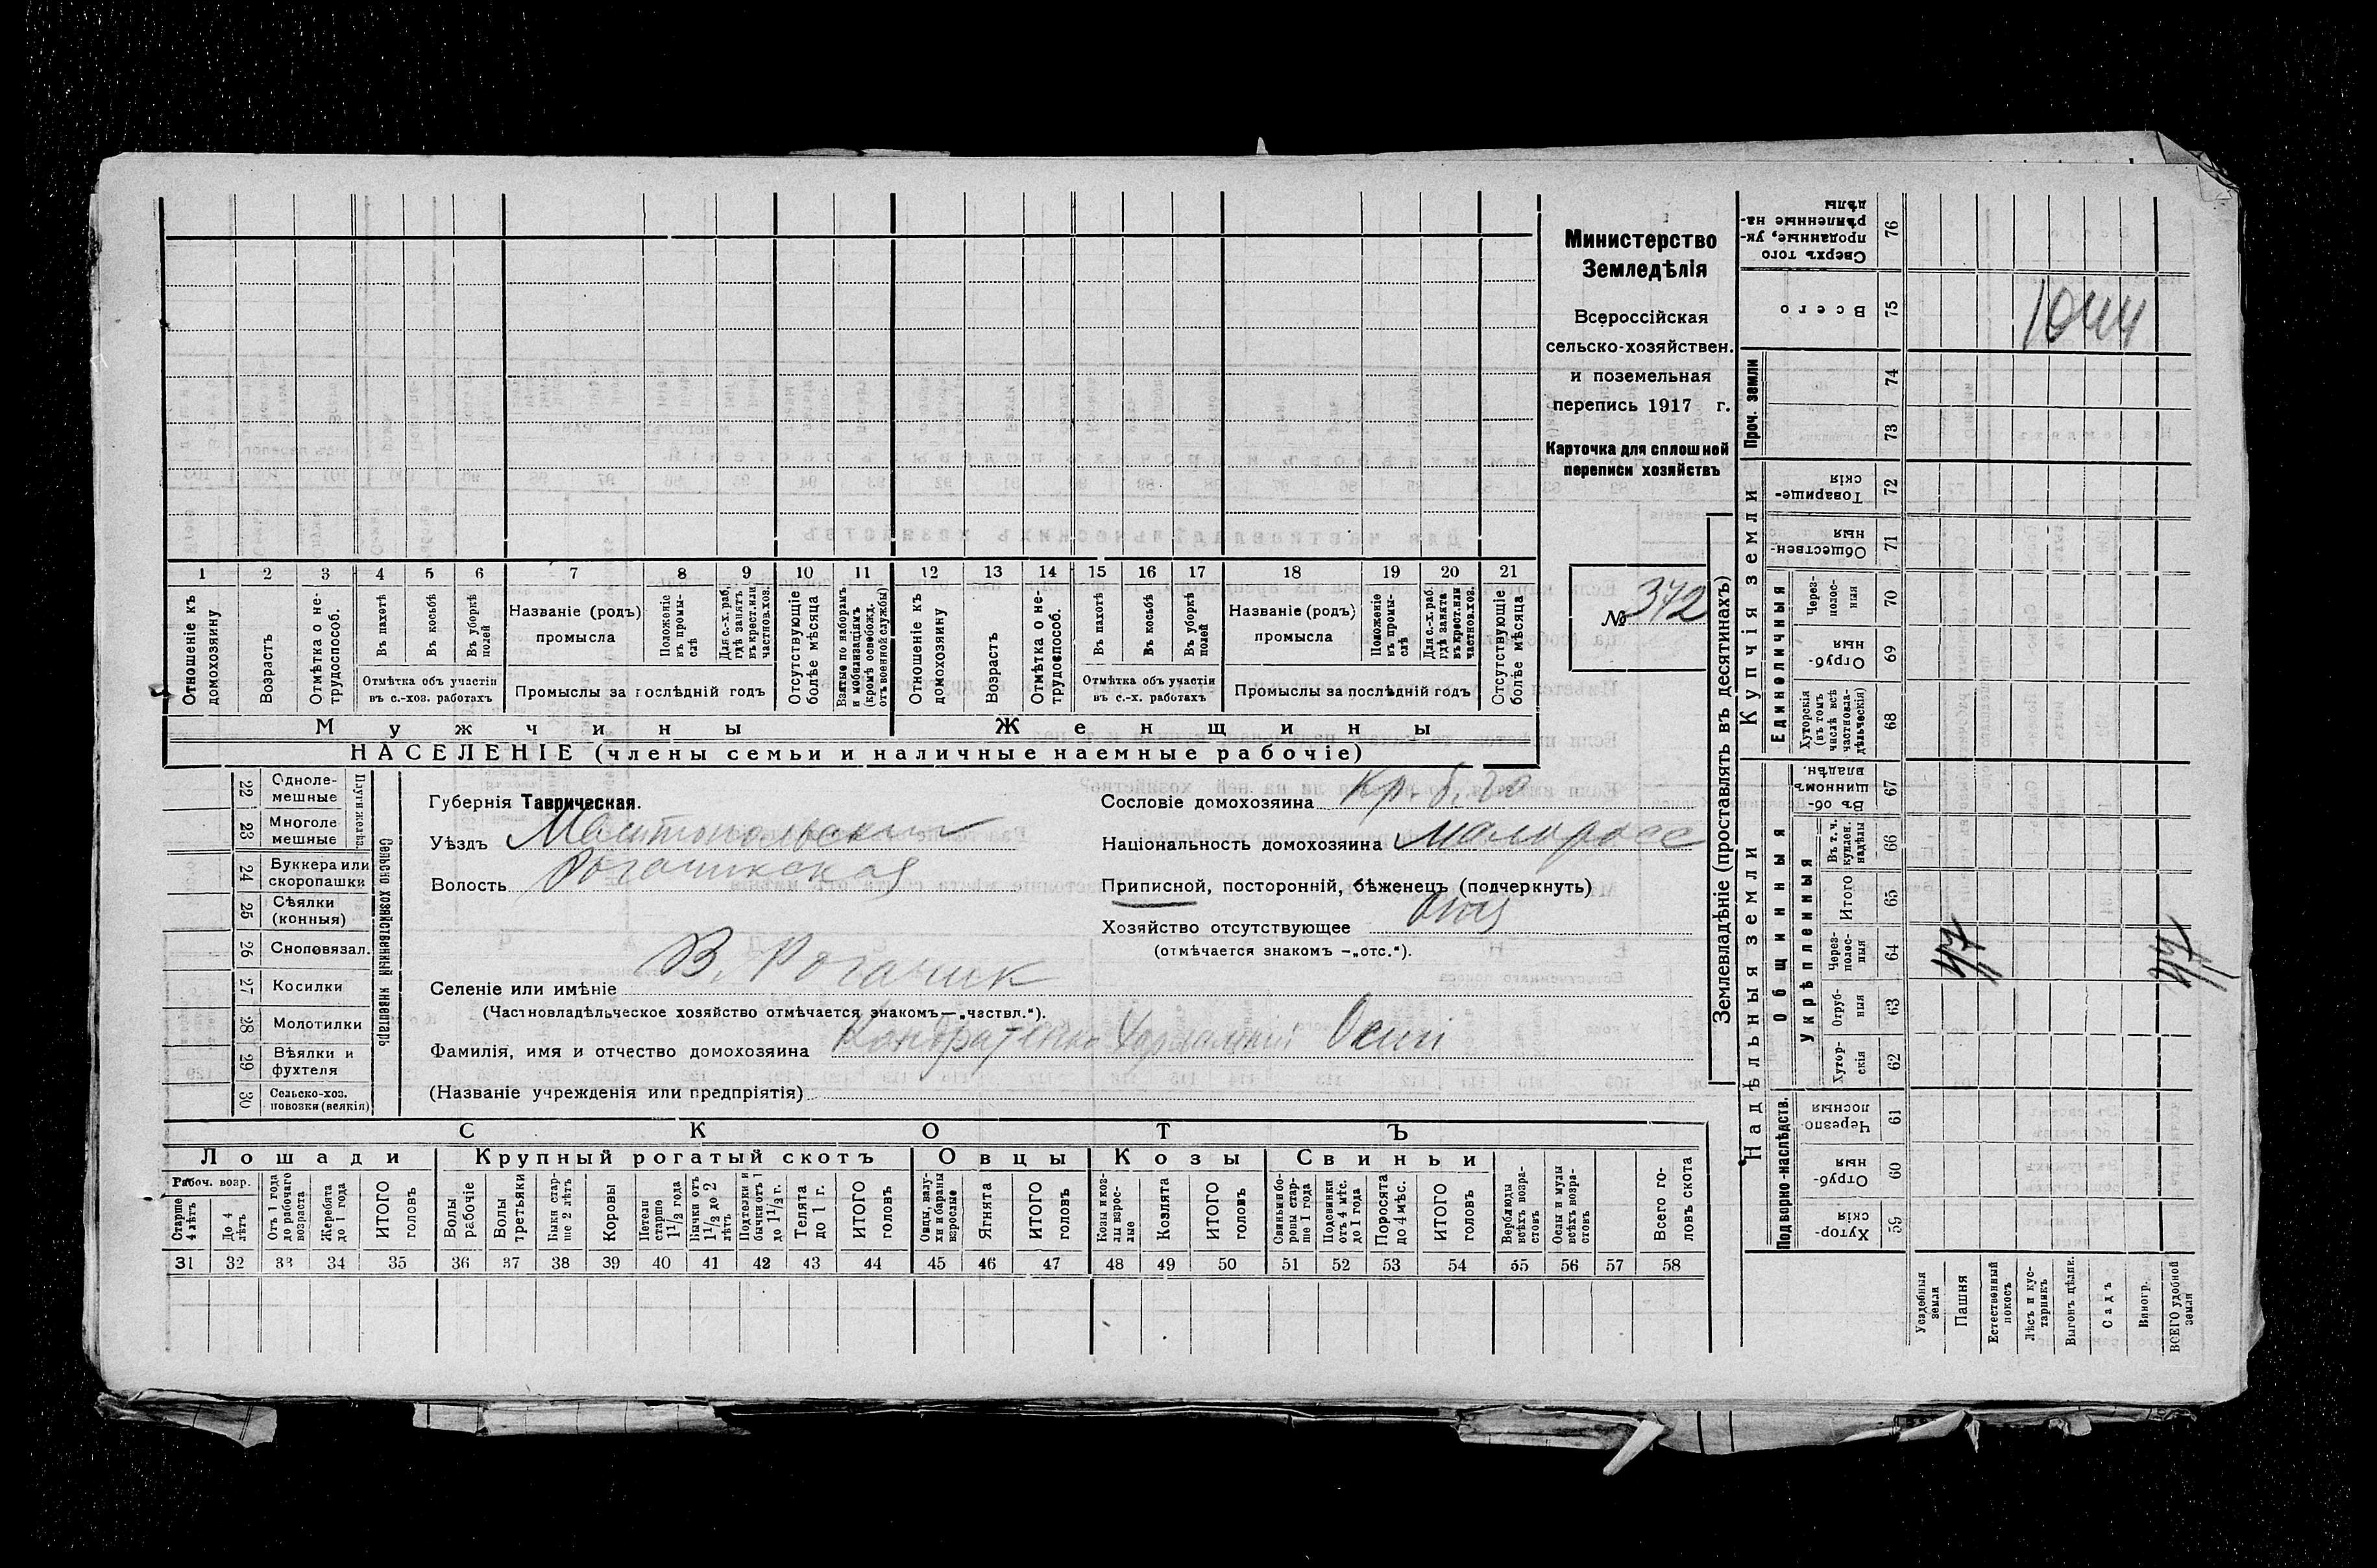 Министерство
Земледѣлія
Всероссійская
сельско-хозяйствен.
и поземельная
перепись 1917 г.
Карточка для сплошной
переписи хозяйствъ
№ 372
1 2 3 4 5 6 7 8 9 10 11 12 13 14 15 16 17 18 19 20 21
Отношеніе къ домохозяину
Возрастъ
Отмѣтка о не-трудоспособ.
Въ пахотѣ
Въ косьбѣ
Въ уборкѣ полей
Отмѣтка объ участіи въ с.-хоз. работахъ
Названіе (родъ) промысла
Положеніе въ промы-слѣ
Для с.-х. раб. гдѣ занятъ въ крест. или частнов. хоз.
Промыслы за послѣдній годъ
Отсутствующіе болѣе мѣсяца
Взятые по наборамъ и мобилизаціямъ (кромѣ освобожд. отъ военной службы)
Отношеніе къ домохозяину
Возрастъ
Отмѣтка о не-трудоспособ.
Въ пахотѣ
Въ косьбѣ
Въ уборкѣ полей
Отмѣтка объ участіи въ с.-х. работахъ
Названіе (родъ) промысла
Положеніе въ промы-слѣ
Для с.-х. раб. гдѣ занята въ крест. или частнов. хоз.
Промыслы за послѣдній годъ
Отсутствующіе болѣе мѣсяца
Мужчины Женщины
НАСЕЛЕНІЕ (члены семьи и наличные наемные рабочіе)
22 Одноле-мешные
23 Многоле мешные
Плуги желѣз.
24 Буккера или скоропашки
25 Сѣялки (конныя)
26 Сноповязал.
27 Косилки
28 Молотилки
29 Вѣялки и фухтеля
30 Сельско-хоз. повозки (всякія)
Сельско хозяйственный инвентарь
Губернія Таврическая.
Уѣздъ Мелитопольский
Волость Рогачикская
Селеніе или имѣніе В. Рогачик
(Частновладѣльческое хозяйство отмѣчается знакомъ—„частвл.“).
Фамилія, имя и отчество домохозяина Кондратенко Харлампий Осип
(Названіе учрежденія или предпріятія)
Сословіе домохозяина Кр.
Національность домохозяина малоросс
Приписной, посторонній, бѣженецъ (подчеркнуть)
Хозяйство отсутствующее
(отмѣчается знакомъ –„отс.“).
СКОТЪ
Лошади Крупный рогатый скотъ Овцы Козы Свиньи
Рабоч. возр.
Старше 4 лѣтъ
До 4 лѣтъ
Отъ 1 года до рабочаго возраста
Жеребята до 1 года
ИТОГО головъ
Волы рабочіе
Волы третьяки
Быки стар-ше 2 лѣтъ
Коровы
Нетели старше 1 1/2 года
Бычки отъ 1 1/2 до 2 лѣтъ
Подтелки и бычки отъ 1 до 1 1/2 г.
Телята до 1 г.
ИТОГО головъ
Овцы, валу-хи и бараны взрослые
Ягнята
ИТОГО головъ
Козы и коз-лы взрос-лые
Козлята
ИТОГО головъ
Свиньи и бо-ровы стар-ше 1 года
Подсвинки отъ 4 мѣс. до 1 года
Поросята до 4 мѣс.
ИТОГО головъ
Верблюды всѣхъ возра-стовъ
Ослы и мулы всѣхъ возра-стовъ
Всего го-ловъ скота
31 32 33 34 35 36 37 38 39 40 41 42 43 44 45 46 47 48 49 50 51 52 53 54 55 56 57 58
Землевладѣніе (проставлять въ десятинахъ)
Купчія земли
Надѣльныя земли
Сверхъ того проданные, ук-рѣпленные на-дѣлы 76
Всего 75
1044
Проч. земли 74
73
Товарище-скія 72
Обществен-ныя 71
Единоличныя
Через-полос-ныя 70
Отруб-ныя 69
Хуторскія (въ томъ числѣ всѣ частновла-дѣльческія) 68
Общинныя
Въ об-щинномъ владѣн. 67
Укрѣпленныя
Въ т. ч. куплен. надѣлы 66
Итого 65
Через-полос-ныя 64
Отруб-ныя 63
Хутор-скія 62
Подворно-наслѣдств.
Черезпо-лосныя 61
Отруб-ныя 60
Хутор-скія 59
Усадебныя земли
Пашня
Естественный покосъ
Лѣсъ и кус-тарникъ
Выгонъ цѣлик.
Садъ
Виногр.
ВСЕГО удобной земли